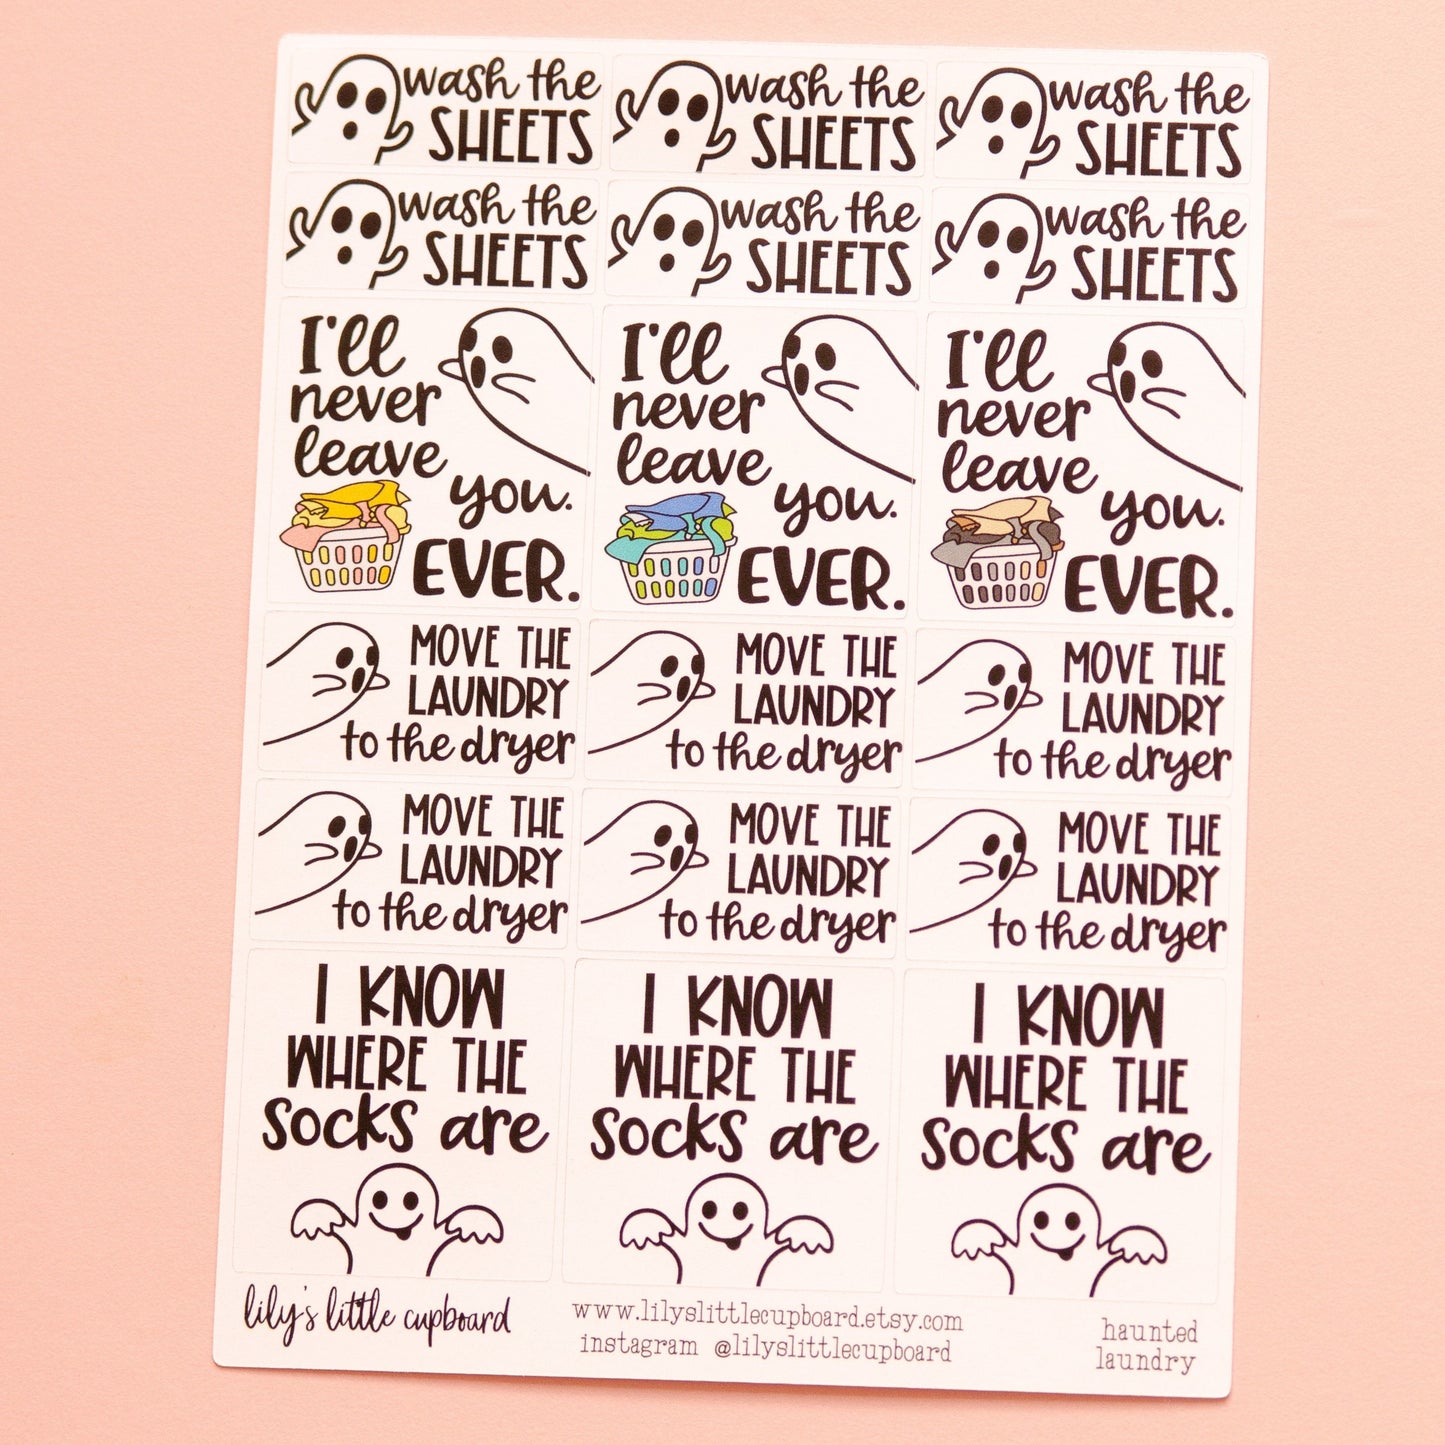 wash the
SHEETS
wash the
SHEETS
wash the
SHEETS
wash the
SHEETS
wash the
SHEETS
wash the
SHEETS
I'll
never
leave
you.
EVER.
I'll
never
leave
you.
EVER.
I'll
never
leave
you.
EVER.
MOVE THE
LAUNDRY
to the dryer
MOVE THE
LAUNDRY
to the dryer
MOVE THE
LAUNDRY
to the dryer
MOVE THE
LAUNDRY
to the dryer
MOVE THE
LAUNDRY
to the dryer
MOVE THE
LAUNDRY
to the dryer
I KNOW
WHERE THE
socks are
I KNOW
WHERE THE
socks are
I KNOW
WHERE THE
socks are
lily's little cupboard
www.lilyslittlecupboard.etsy.com
instagram @lilyslittlecupboard
haunted
laundry